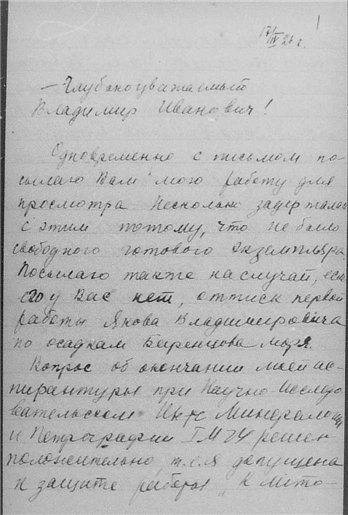 1
17/III 26 г.
Глубокоуважаемый
Владимир Иванович!
Одновременно с письмом по-
сылаю Вам мою работу для
просмотра. Несколько задержалась
с этим потому, что не было
свободного готового экземпляра.
Посылаю также на случай, если
его у Вас нет, оттиск первой
работы Якова Владимировича
по осадкам Баренцова моря.
Вопрос об окончании моей ас-
пирантуры при Научно-Исследо-
вательском Ин-те Минералогии
и Петрографии 1МГУ решен
положительно, т.е. я допущена
к защите работы, к лито-